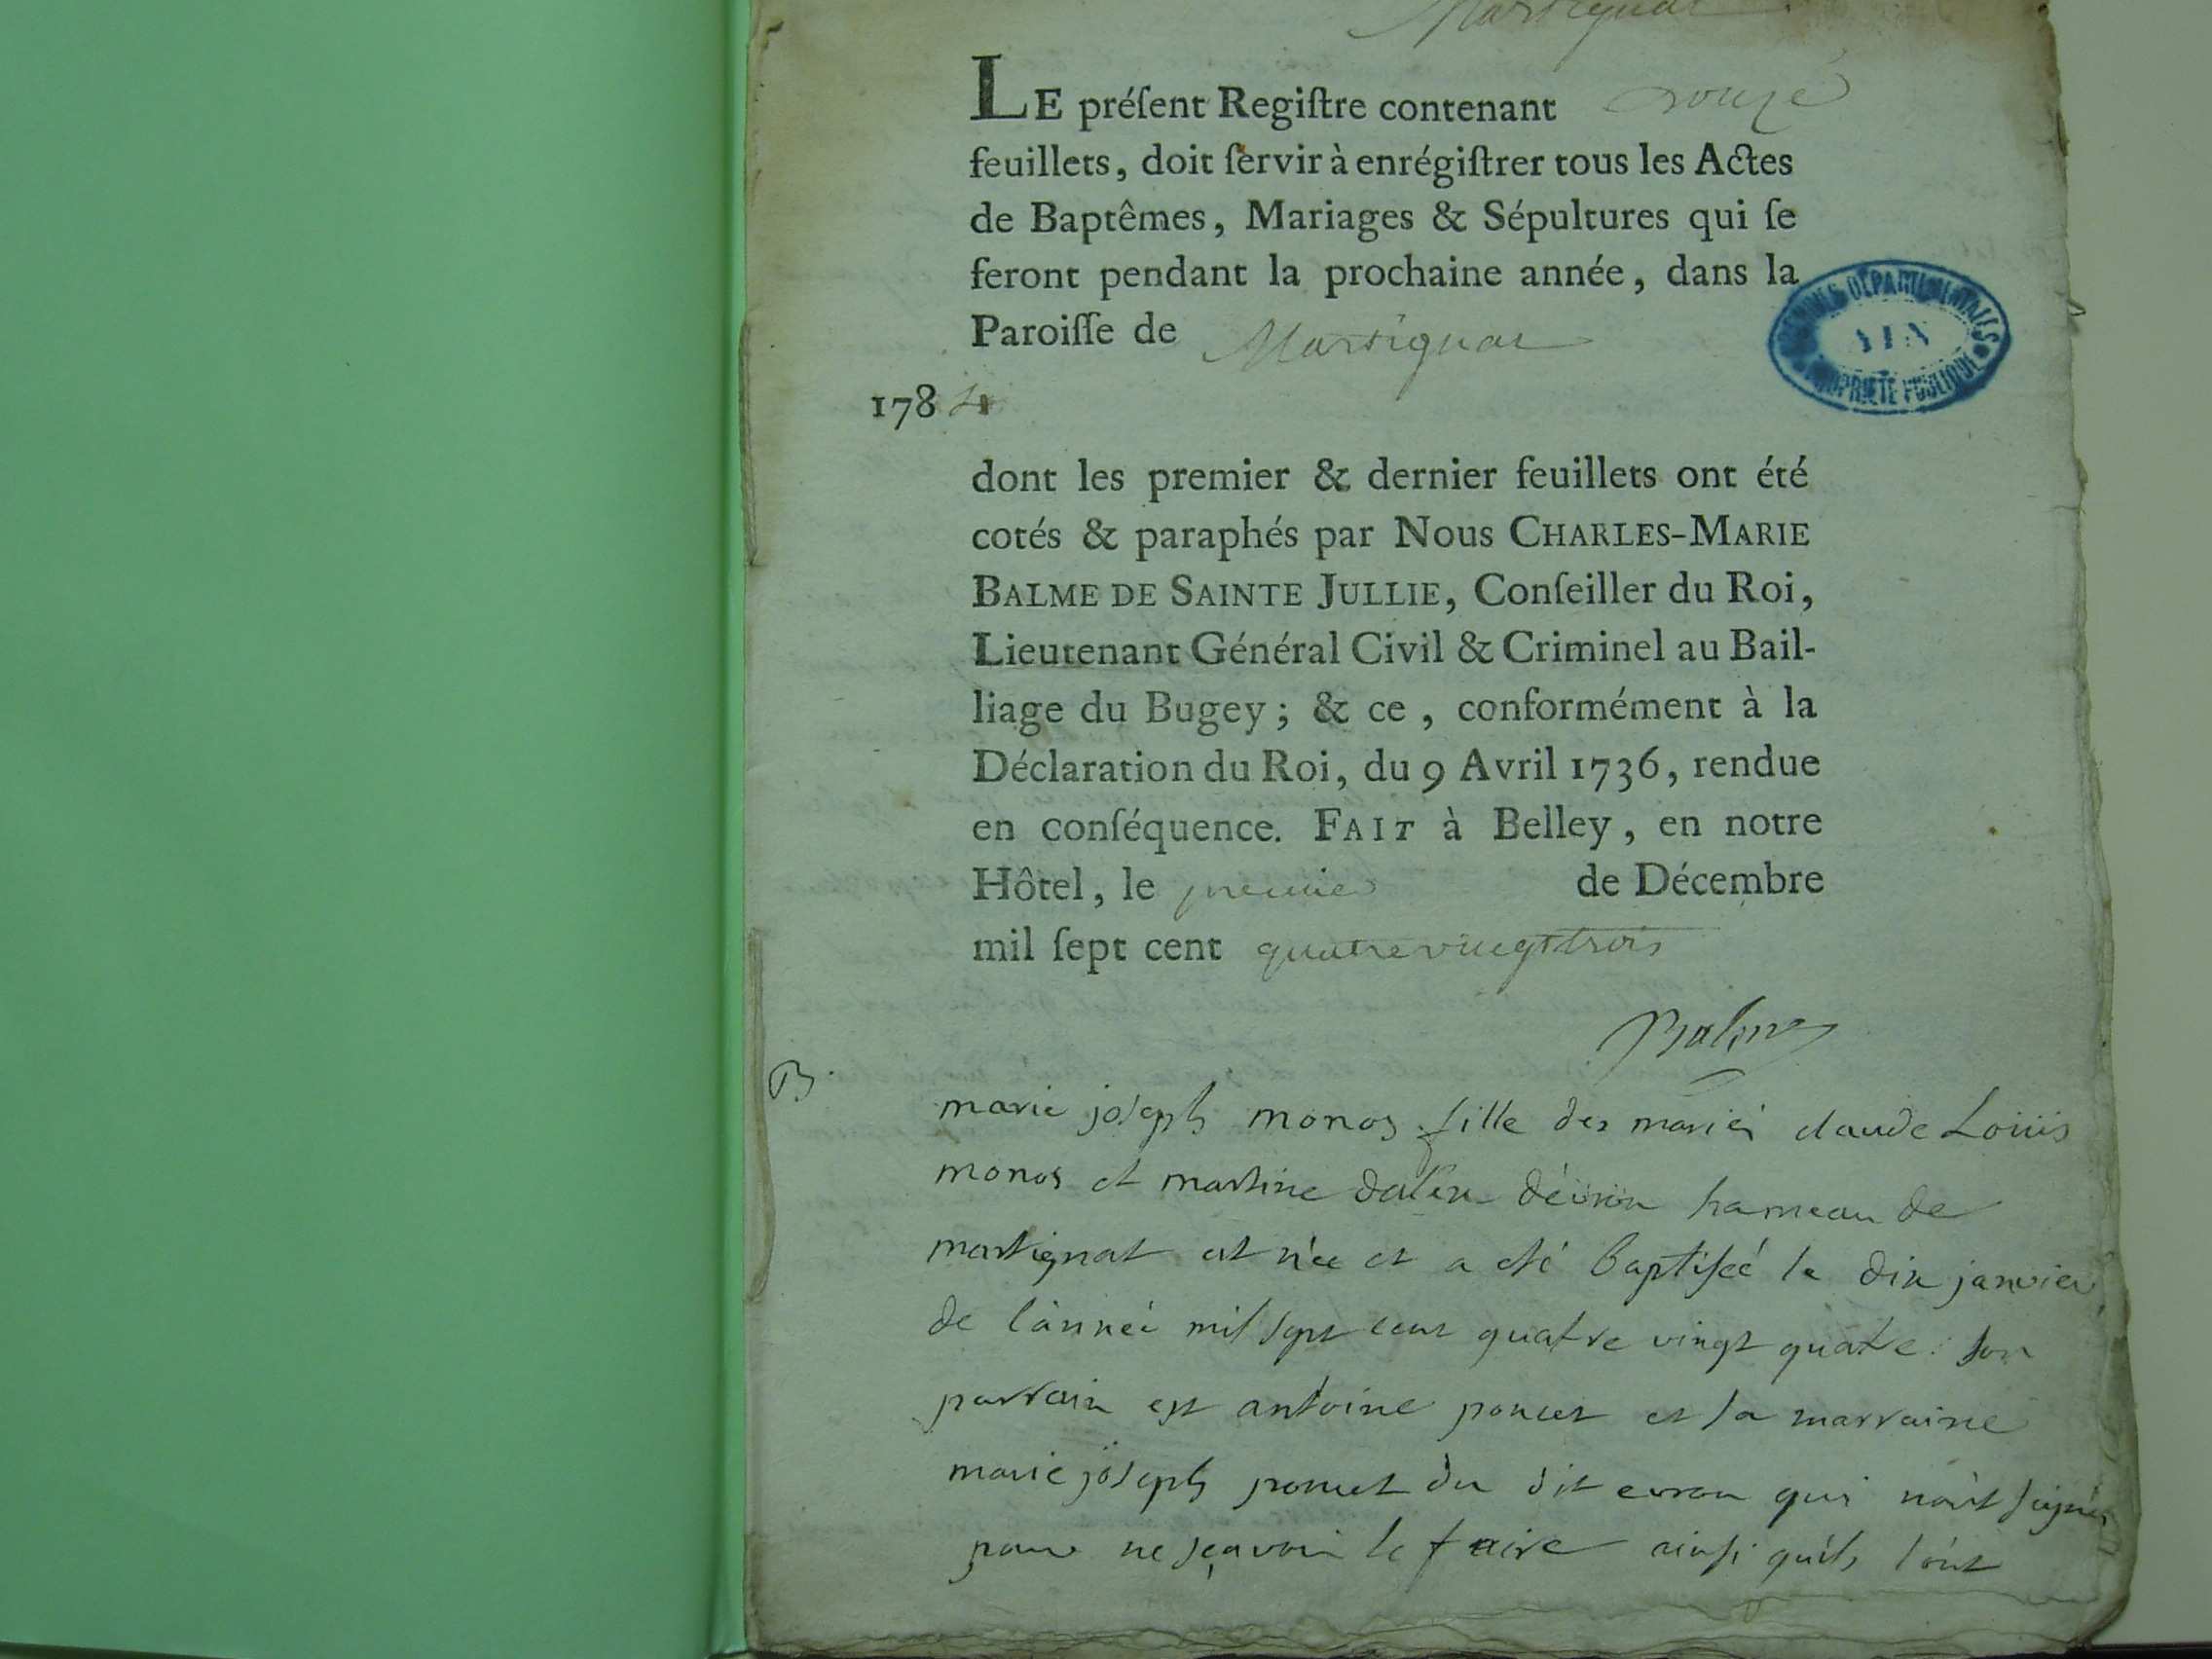 Martignat
LE préſent Regiſtre contenant douze
feuillets, doit ſervir à enrégiſtrer tous les Actes
de Baptêmes, Mariages & Sépultures qui ſe
feront pendant la prochaine année, dans la
Paroiſſe de Martignat
ARCHIVES DÉPARTEMENTALES
AIN
PROPRIÉTÉ PUBLIQUE
1784
dont les premier & dernier feuillets ont été
cotés & paraphés par Nous CHARLES-MARIE
BALME DE SAINTE JULLIE, Conſeiller du Roi,
Lieutenant Général Civil & Criminel au Bail-
liage du Bugey; & ce, conformément à la
Déclaration du Roi, du 9 Avril 1736, rendue
en conſéquence. FAIT à Belley, en notre
Hôtel, le premier de Décembre
mil ſept cent quatre vingt trois
Balme
B.
marie joseph monos fille des mariés claude Loüis
monos et martine hameau de
martignat est née et a été baptisée le dix janvier
de l'année mil sept cent quatre vingt quatre: son
parrain est antoine poncet et sa marraine
marie joseph poncet du dit evron qui n'ont signés
pour ne sçavoir le faire ainsi qu'ils l'ont